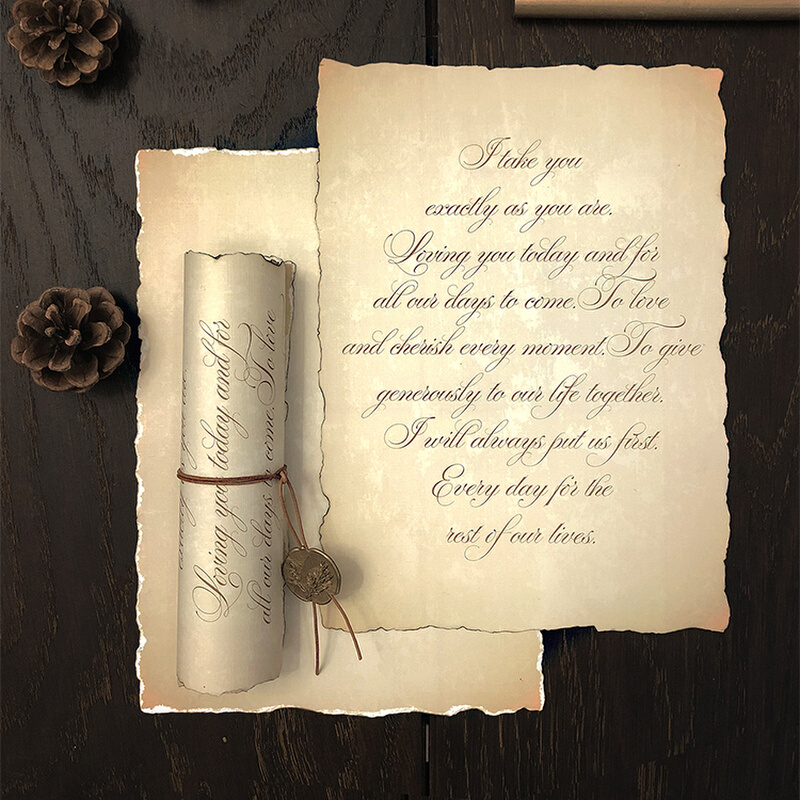 I take you
exactly as you are.
Loving you today and for
all our days to come. To love
and cherish every moment. To give
generously to our life together.
I will always put us first.
Every day for the
rest of our lives.
Loving you today and for
all our days come. To love